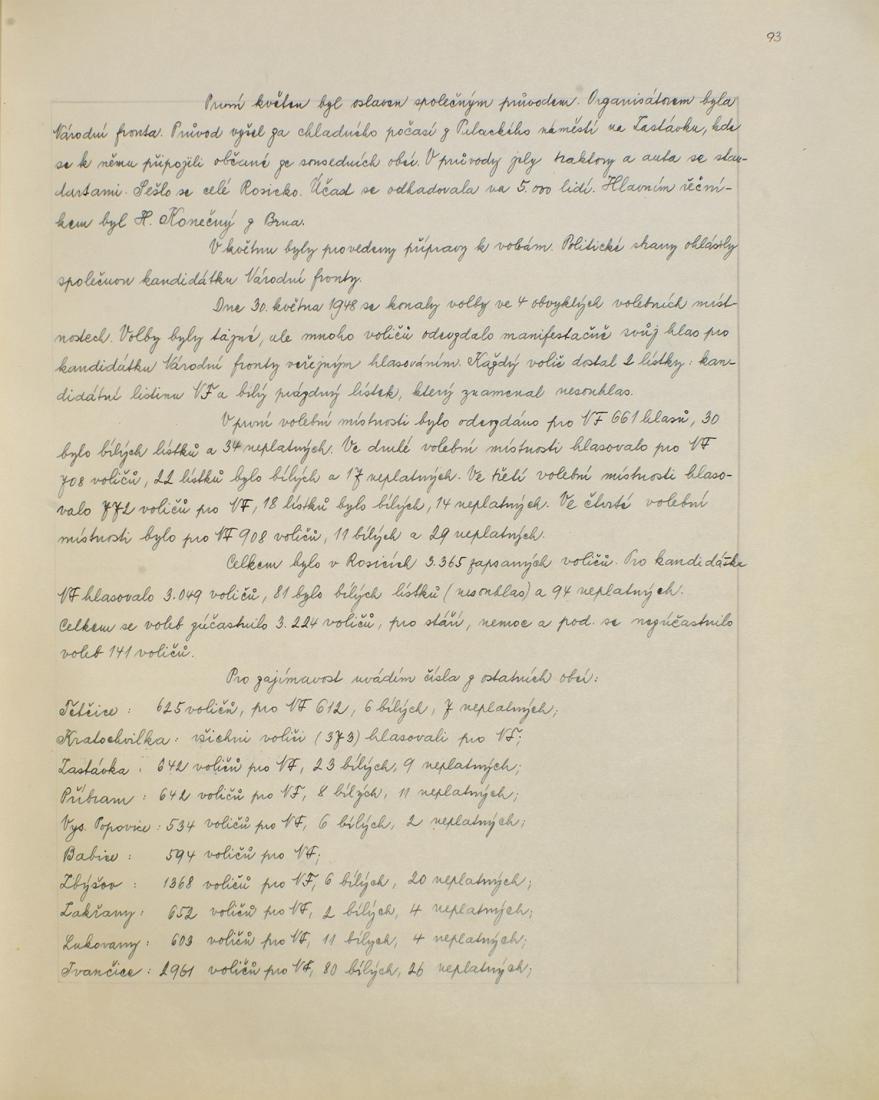 93
První květen byl oslaven společným průvodem. Organisátorem byla
Národní fronta. Průvod vyšel za chladného počasí z Palackého náměstí na Zastávku, kde
se k němu připojili občané ze sousedních obcí. V průvody jely traktory a auta se stan-
dartami. Sešlo se celé Rosicko. Účast se odhadovala na 5.000 lidí. Hlavním řeční-
kem byl H. Konečný z Brna.
V květnu byly provedeny přípravy k vobám. Politické strany ohlásily
společnou kandidátku Národní fronty.
Dne 30. května 1948 se konaly volby ve 4 obvyklých volebních míst-
nostech. Volby byly tajné, ale mnoho voličů odevzdalo manifestačně svůj hlas pro
kandidátku Národní fronty veřejným hlasováním. Každý volič dostal 2 lístky: kan-
didátní listinu NF a bílý prázdný lístek, který znamenal nesouhlas.
V první volební místnosti bylo odevzdáno pro NF 661 hlasů, 30
bylo bílých lístků a 34 neplatných. Ve druhé volební místnosti hlasovalo pro NF
708 voličů, 22 lístků bylo bílých a 17 neplatných. Ve třetí volební místnosti hlaso-
valo 772 voličů pro NF, 18 lístků bylo bílých, 14 neplatných. Ve čtvrté volební
místnosti bylo pro NF 908 voličů, 11 bílých a 29 neplatných.
Celkem bylo v Rosicích 3.365 zapsaných voličů. Pro kandidátku
NF hlasovalo 3.049 voličů, 81 bylo bílých lístků (nesouhlas) a 94 neplatných.
Celkem se voleb zúčastnilo 3.224 voličů, pro stáří, nemoc a pod. se nezúčastnilo
voleb 141 voličů.
Pro zajímavost uvádím čísla z ostatních obcí:
Tetčice: 625 voličů, pro NF 612, 6 bílých, 7 neplatných;
Kratochvilka: všichni voliči (373) hlasovali pro NF;
Zastávka: 642 voličů pro NF, 23 bílých, 9 neplatných;
Příbram: 642 voličů pro NF, 8 bílých, 11 neplatných;
Vys. Popovice: 534 voličů pro NF, 6 bílých, 2 neplatných;
Babice: 594 voličů pro NF;
Zbýšov: 1368 voličů pro NF, 6 bílých, 20 neplatných;
Zakřany: 652 voličů pro NF, 2 bílých, 4 neplatných;
Lukovany: 603 voličů pro NF, 11 bílych, 4 neplatných;
Ivančice: 2961 voličů pro NF, 80 bílých, 26 neplatných;